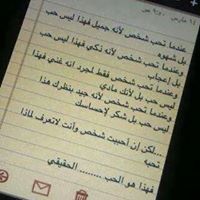 ١٤ مارس
عندما تحب شخص لأنه جميل فهذا ليس حب
بل شهوه
وعندما تحب شخص لأنه ذكي فهذا ليس حب
بل إعجاب
وعندما تحب شخص فقط لمجرد انه غني فهذا
ليس حب بل لأنك مادي
وعندما تحب شخص لأنه جيد بنظرك هذا
ليس حب بل شكر لإحساسك
...لكن إن أحببت شخص وأنت لاتعرف لماذا
تحبه
فهذا هو الحب ........ الحقيقي